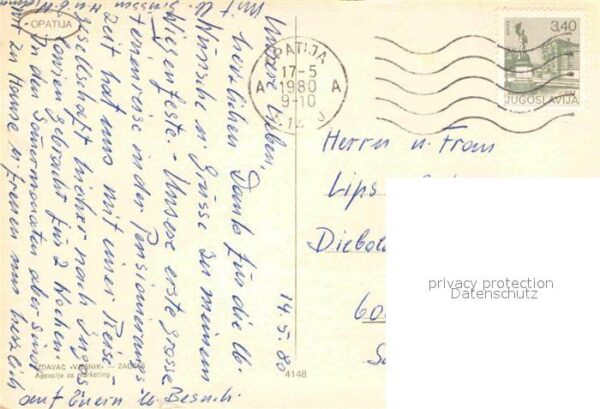 OPATIJA
Unsere Lieben,
herzlichen Dank für die lb.
Wünsche u. Grüsse zu meinem
Wiegenfeste. - Unsere erste grosse
Ferienreise in der Pensionierungs-
Zeit hat uns mit einer Reise-
gesellschaft hierher nach Jugos-
lawien gebracht für 2 Wochen.
In den Sommermonaten aber sind
wir zu Hause u. freuen uns herzlich
auf Euern lb. Besuch.
Mit lb.
14.5.80
IZDAVAČ »VJESNIK« — ZAGREB
Agencija za marketing
4148
OPATIJA
17-5
1980
9-10
A A
3.40
JUGOSLAVIJA
Herrn u. Frau
Lips
Diebold
60
privacy protection
Datenschutz